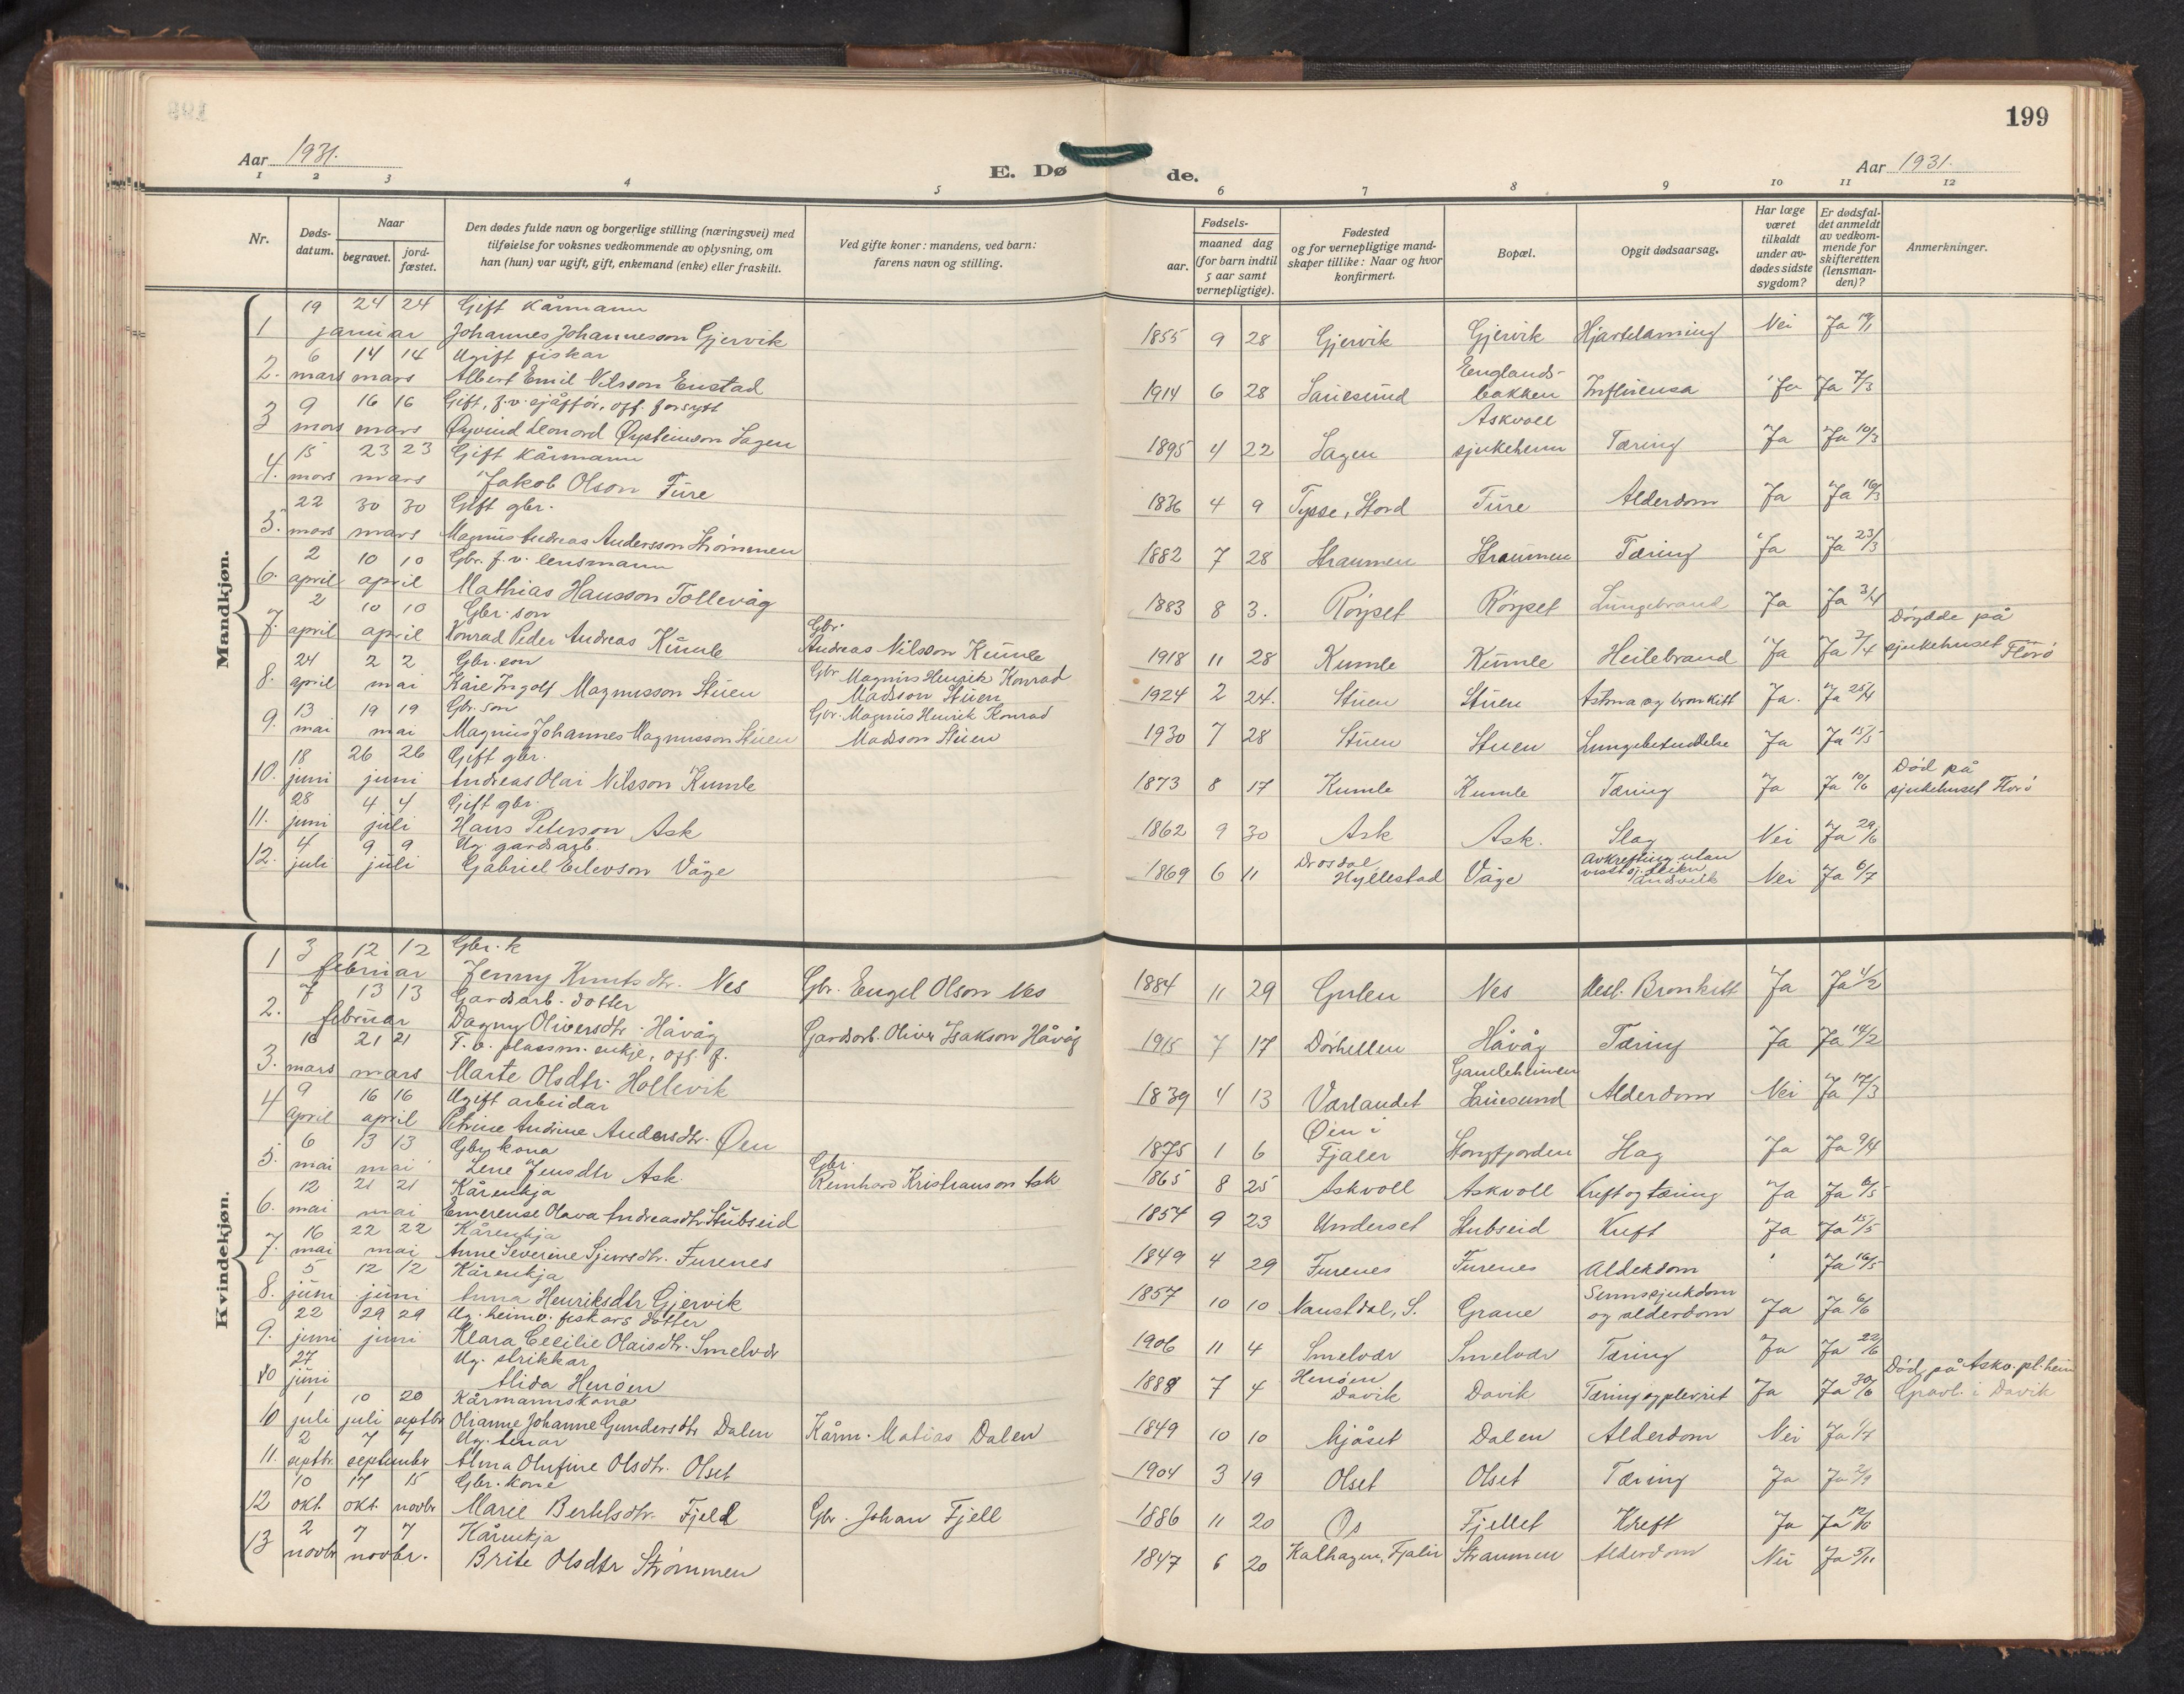 199
Aar 1931.
E. Døde.
Aar 1931.
1 2 3 4 5 6 7 8 9 10 11 12
Nr.
Døds-datum.
Naar
begravet.
jord-fæstet.
Den dødes fulde navn og borgerlige stilling (næringsvei) med
tilføielse for voksnes vedkommende av oplysning, om
han (hun) var ugift, gift, enkemand (enke) eller fraskilt.
Ved gifte koner: mandens, ved barn:
farens navn og stilling.
Fødsels-
aar.
maaned dag
(for barn indtil
5 aar samt
vernepligtige).
Fødested
og for vernepligtige mand-
skaper tillike: Naar og hvor
konfirmert.
Bopæl.
Opgit dødsaarsag.
Har læge
været
tilkaldt
under av-
dødes sidste
sygdom?
Er dødsfal-
det anmeldt
av vedkom-
mende for
skifteretten
(lensman-
den)?
Anmerkninger.
Mandkjøn.
1 19 januar 24 24 Gift kårmann
Johannes Johannesson Gjervik 1855 9 28 Gjervik Gjervik Hjartelamming Nei Ja 19/1
2. 6 mars 14 14 mars Ugift fiskar
Albert Emil Nilsson Enstad 1914 6 28 Sauesund Englands-bakken Influensa Ja Ja 7/3
3 9 mars 16 16 mars Gift, f.v. sjåffør, off. forsytt
Øyvind Leonard Øysteinson Sagen 1895 4 22 Sagen Askvoll sjukeheim Tæring Ja Ja 10/3
4. 15 mars 23 23 mars Gift kårmann
Jakob Olson Fure 1836 4 9 Tysse, Stord Fure Alderdom Ja Ja 16/3
5. 22 mars 30 30 mars Gift gbr.
Magnus Andreas Andersson Strømmen 1882 7 28 Straumen Straumen Tæring Ja Ja 23/3
6. 2 april 10 10 april Gbr. f.v. lensmann
Mathias Hansson Tollevåg 1883 8 3. Röyset Röyset Lungebrand Ja Ja 3/4
7. 2 april 10 10 april Gbr. son
Konrad Peder Andreas Kumle Gbr. Andreas Nilsson Kumle 1918 11 28 Kumle Kumle Heilebrand Ja Ja 7/4 Döydde på sjukehuset Florö
8. 24 april 2 2 mai Gbr. son
Kåre Ingolf Magnusson Stuen Gbr Magnus Henrik Konrad Madsson Stuen 1924 2 24. Stuen Stuen Astma og bronkitt Ja. Ja 25/4
9. 13 mai 19 19 mai Gbr. son
Magnus Johannes Magnusson Stuen Gbr. Magnus Henrik Konrad Madsson Stuen 1930 7 28 Stuen Stuen Lungebetendelse Ja Ja 15/5
10. 18 juni 26 26 juni Gift gbr.
Andreas Olai Nilsson Kumle 1873 8 17 Kumle Kumle Tæring Ja Ja 10/6 Död på sjukehuset Florö
11. 28 juni 4 4 juli Gift gbr.
Hans Peterson Ask 1862 9 30 Ask Ask. Slag Nei Ja 29/6
12. 4 juli 9 9 juli Ug. gardsarb.
Gabriel Eilevson Våge 1869 6 11 Drosdal Hyllestad Våge Avkrefting utan Nei Ja 6/7
Kvindekjøn.
1 3 februar 12 12 Gbr. k
Jenny Knutsdtr. Nes Gbr. Engel Olson Nes 1884 11 29 Gulen Nes Mesl. Bronkitt Ja Ja 4/2
2. 7 februar 13 13 Gardsarb. dotter
Dagny Oliversdtr. Håvåg Gardsarb. Oliver Isakson Håvåg 1915 7 17 Dörhellen Håvåg Tæring Ja Ja 14/2
3. 16 mars 21 21 mars F.v. plassm. enkje, off. f.
Marte Olsdtr. Hollevik 1839 4 13 Varlandet Gamleheimen Sauesund Alderdom Nei Ja 17/3
4 9 april 16 16 april Ugift arbeidar
Petrine Andrine Andersdtr. Øen 1875 1 6 Øen i Fjaler Stongfjorden Slag Ja Ja 9/4
5. 6 mai 13 13 mai Gbr kona
Lene Jensdtr Ask. Gbr. Reinhard Kristianson Ask 1865 8 25 Askvoll Askvoll Kreft og tæring Ja Ja 6/5
6. 12 mai 21 21 mai Kårenkja
Emerense Olava Andreasdtr Stubseid 1857 9 23 Underset Stubseid Kreft Ja Ja 15/5
7. 16 mai 22 22 mai Kårenkja
Anne Severine Sjursdtr. Furenes 1849 4 29 Furenes Furenes Alderdom Ja 16/5
8. 5 juni 12 12 juni Kårenkja
Anna Henriksdtr Gjervik 1857 10 10 Naustdal, S. Grane Sinnssjukdom og alderdom Ja Ja 6/6
9. 22 juni 29 29 juni Ug. heimv. fiskars dotter
Klara Cecilie Olaisdtr. Smelvær 1906 11 4 Smelvær Smelvær Tæring Ja Ja 22/6
10 27 juni Ug. strikkar
Alida Henöen 1888 7 4 Henöen Davik Davik Tæring og plevrit Ja Ja 30/6 Död på Askv. pl.heim Gravl. i Davik
10 1 juli 10 juli 20 septbr Kårmannskona
Olianne Johanne Gundersdtr Dalen Kårm. Matias Dalen 1849 10 10 Mjåset Dalen Alderdom Nei Ja 1/7
11. 2 septbr. 7 7 september Ug. tenar
Alma Olufine Olsdtr. Olset 1904 3 19 Olset Olset Tæring Ja Ja 2/9
12 10 okt. 17 okt. 15 novbr Gbr. kone
Marie Bertelsdtr. Fjell Gbr. Johan Fjell 1886 11 20 Os Fjellet Kreft Ja Ja 12/10
13 2 novbr 7 7 novbr. Kårenkja
Brite Olsdtr Strømmen 1847 6 20 Kalhagen, Fjaler Straumen Alderdom Nei Ja 5/11